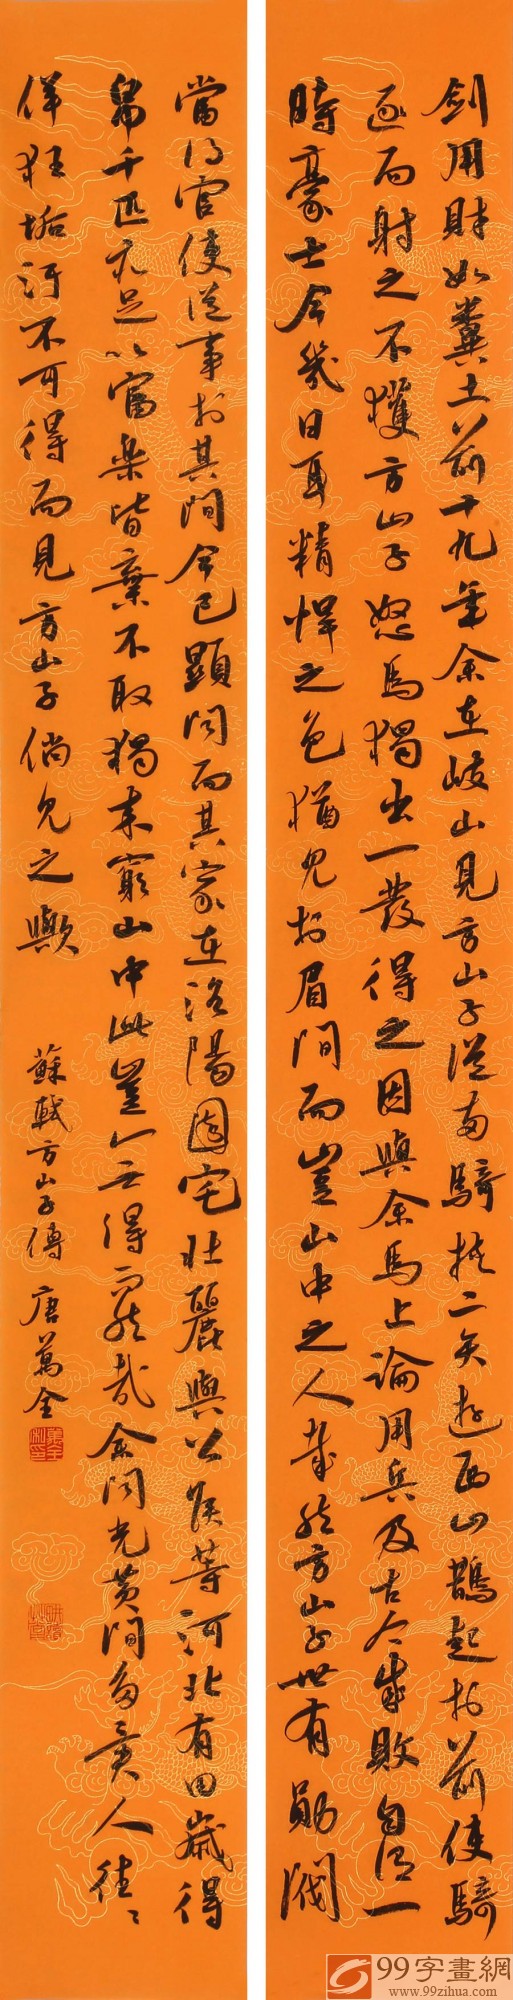 劍用財如糞土前十九年余在岐山見方山子從兩騎挾二矢遊西山鵲起於前使騎
逐而射之不獲方山子怒馬獨出一發得之因與余馬上論用兵及古今成敗自謂一
時豪士今幾日耳精悍之色猶見於眉間而豈山中之人哉然方山子世有勛閥
當得官使從事於其間今已顯聞而其家在洛陽園宅壯麗與公侯等河北有田歲得
帛千匹亦足以富樂皆棄不取獨來窮山中此豈无得而然哉余聞光黃間多異人往〻
佯狂垢汙不可得而見方山子倘見之歟
蘇軾方山子傳 唐萬全
99字畫網
www.99zihua.com